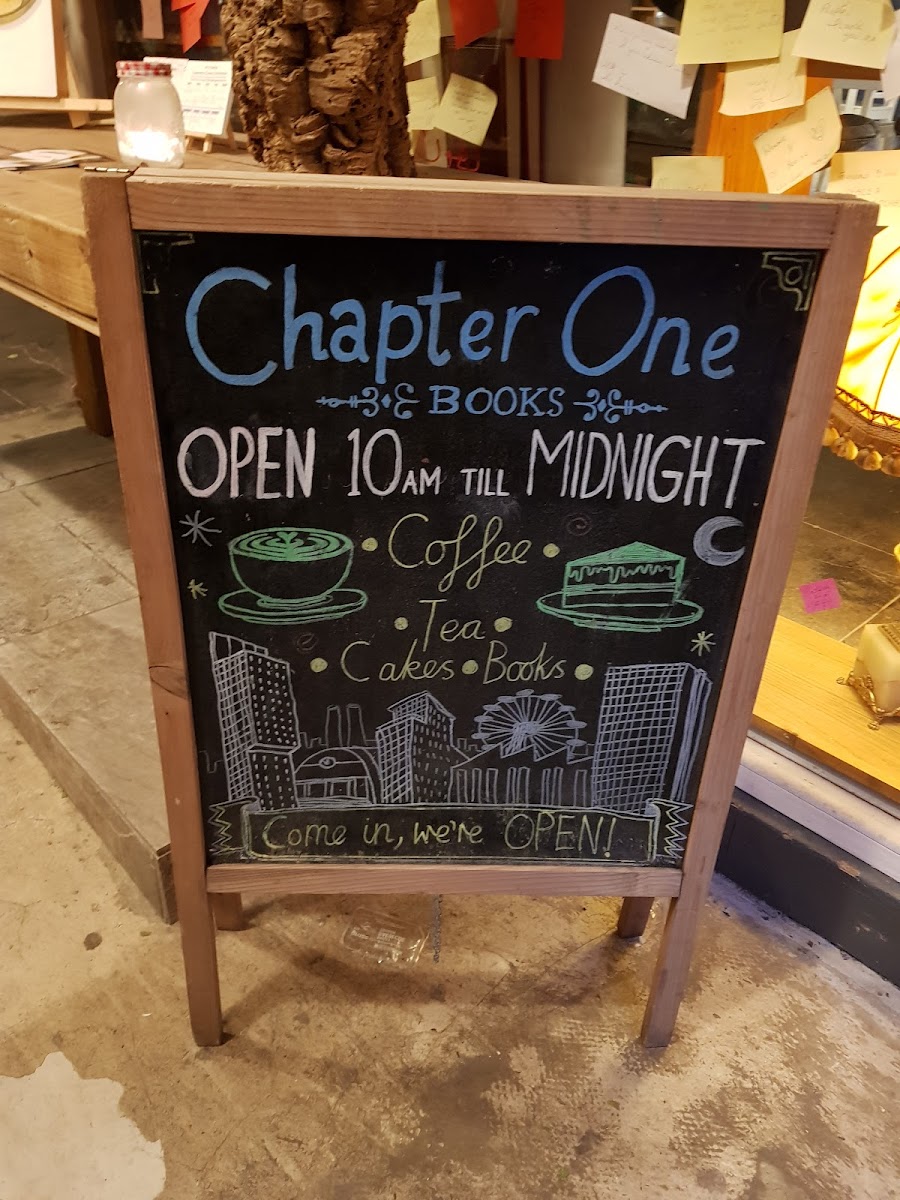 Chapter One
BOOKS
OPEN 10AM TILL MIDNIGHT
Coffee
Tea
Cakes • Books
Come in, we're OPEN!